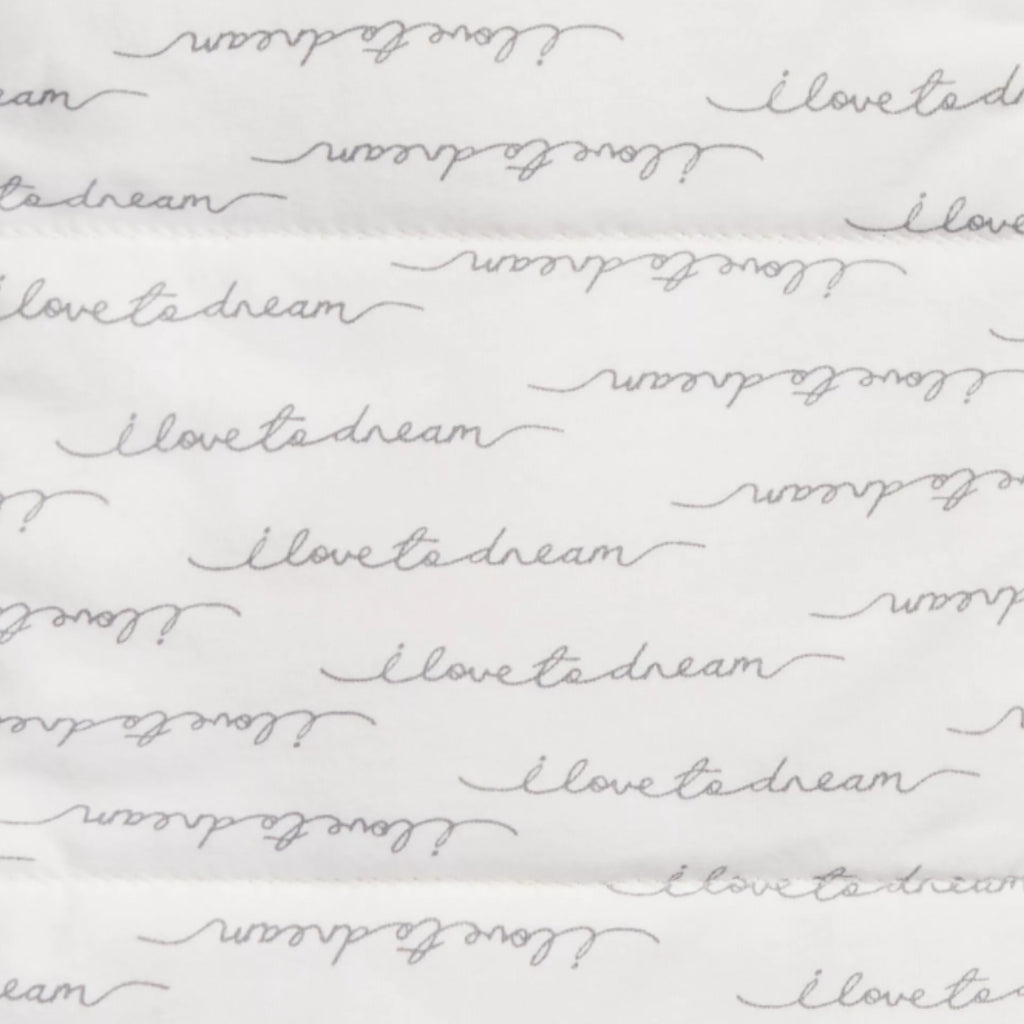 i love to dream
eam
i love to dr
i love to dream
to dream
i love
i love to dream
i love to dream
i love to dream
i love to dream
ve to dream
i
i love to dream
dream
i love to
i love to dream
i love to dre
i love to dream
i love to dream
i love to dream
i love to dream
eam
i love to